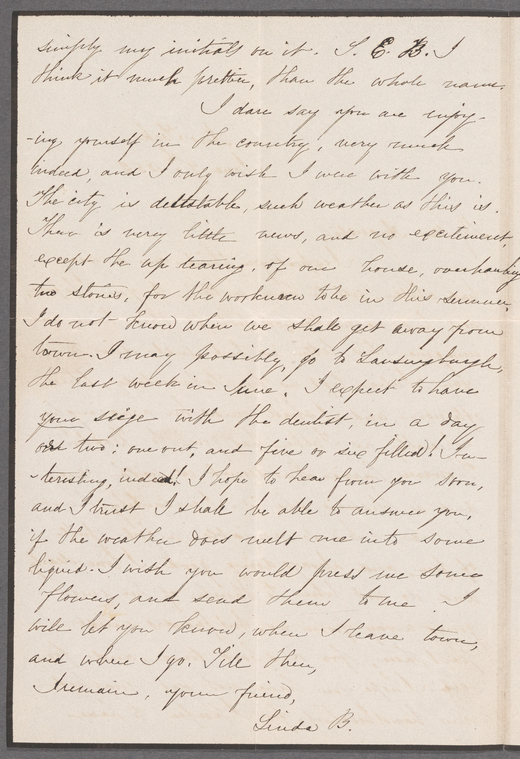 simply my initials on it. S. E. B. I
think it much prettier, than the whole name.
I dare say you are enjoy-
-ing yourself in the country, very much
indeed, and I only wish I were with you.
The city is detestable, such weather as this is.
There is very little news, and no excitement,
except the up tearing, of our house, overhauling
two stories, for the workmen to be in this summer.
I do not know when we shall get away from
town. I may possibly, go to Lansingburgh,
the last week in June. I expect to have
your siege with the dentist, in a day
or two; one out, and five or six filled! In-
-teresting, indeed! I hope to hear from you soon,
and I trust I shall be able to answer you,
if the weather does melt me into some
liquid. I wish you would press me some
flowers, and send them to me. I
will let you know, when I leave town,
and where I go. Till then,
I remain, your friend,
Linda B.